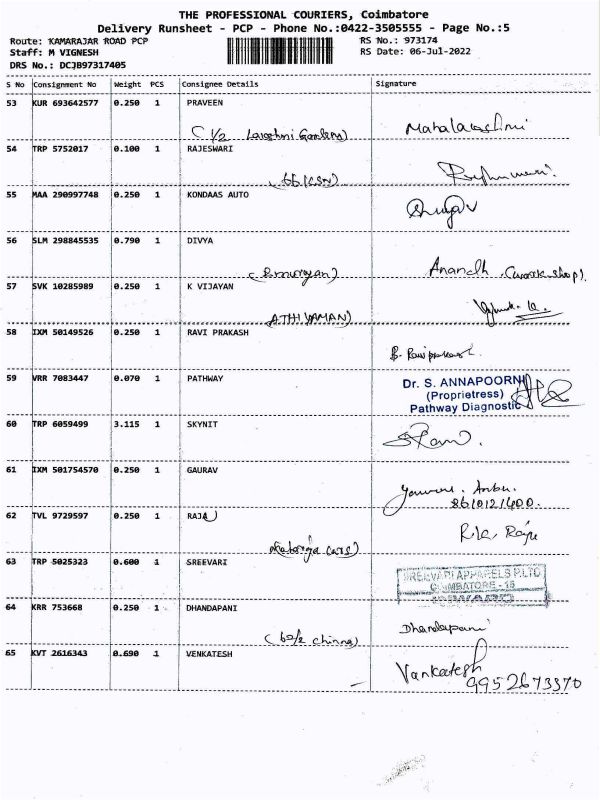 THE PROFESSIONAL COURIERS, Coimbatore
Delivery Runsheet - PCP - Phone No.:0422-3505555 - Page No.:5
Route: KAMARAJAR ROAD PCP RS No.: 973174
Staff: M VIGNESH RS Date: 06-Jul-2022
DRS No.: DCJB97317405
S No Consignment No Weight PCS Consignee Details Signature
53 KUR 693642577 0.250 1 PRAVEEN
C 1/2 Lakshmi Gardens) Mahalakshmi
54 TRP 5752017 0.100 1 RAJESWARI
55 MAA 290997748 0.250 1 KONDAAS AUTO
56 SLM 298845535 0.790 1 DIVYA
Anandh (work shop).
57 SVK 10285989 0.250 1 K VIJAYAN
ATHIYAMAN)
58 IXM 50149526 0.250 1 RAVI PRAKASH
B. Raviprakash.
59 VRR 7083447 0.070 1 PATHWAY
Dr. S. ANNAPOORNI
(Proprietress)
Pathway Diagnostic
60 TRP 6059499 3.115 1 SKYNIT
61 IXM 501754570 0.250 1 GAURAV
62 TVL 9729597 0.250 1 RAJA
63 TRP 5025323 0.600 1 SREEVARI
SREEVARI APPARELS P.LTD
COIMBATORE - 15
INWARD
64 KRR 753668 0.250 1 DHANDAPANI
Dhandapani
65 KVT 2616343 0.690 1 VENKATESH
Vankatesh
9952673370